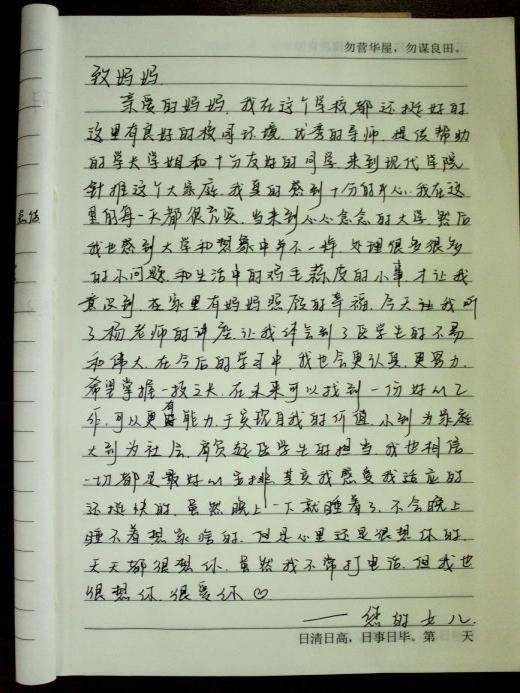 勿营华屋，勿谋良田。
致妈妈
亲爱的妈妈，我在这个学校都还挺好的
这里有良好的校园环境，优秀的导师，提供帮助
的学长学姐和十分友好的同学，来到现代学院
针推这个大家庭，我真的感到十分的开心，我在这
里的每一天都很充实，当来到心心念念的大学，然后
我也感到大学和想象中并不一样，处理很多很多
的小问题，和生活中的鸡毛蒜皮的小事，才让我
意识到，在家里有妈妈照顾的幸福，今天让我听
了杨老师的讲座，让我体会到了医学生的不易
和伟大，在今后的学习中，我也会更认真，更努力，
希望掌握一技之长，在未来可以找到一份好的工
作，可以更有能力于实现自我的价值，小到为家庭
大到为社会，肩负起医学生的担当，我也相信
一切都是最好的安排，其实我感受我适应的
还挺快的，虽然晚上一下就睡着了，不会晚上
睡不着想家啥的，但是心里还是很想你的，
天天都很想你，虽然我不常打电话，但我也
很想你，很爱你♡
——您的女儿
日清日高，日事日毕。第 天